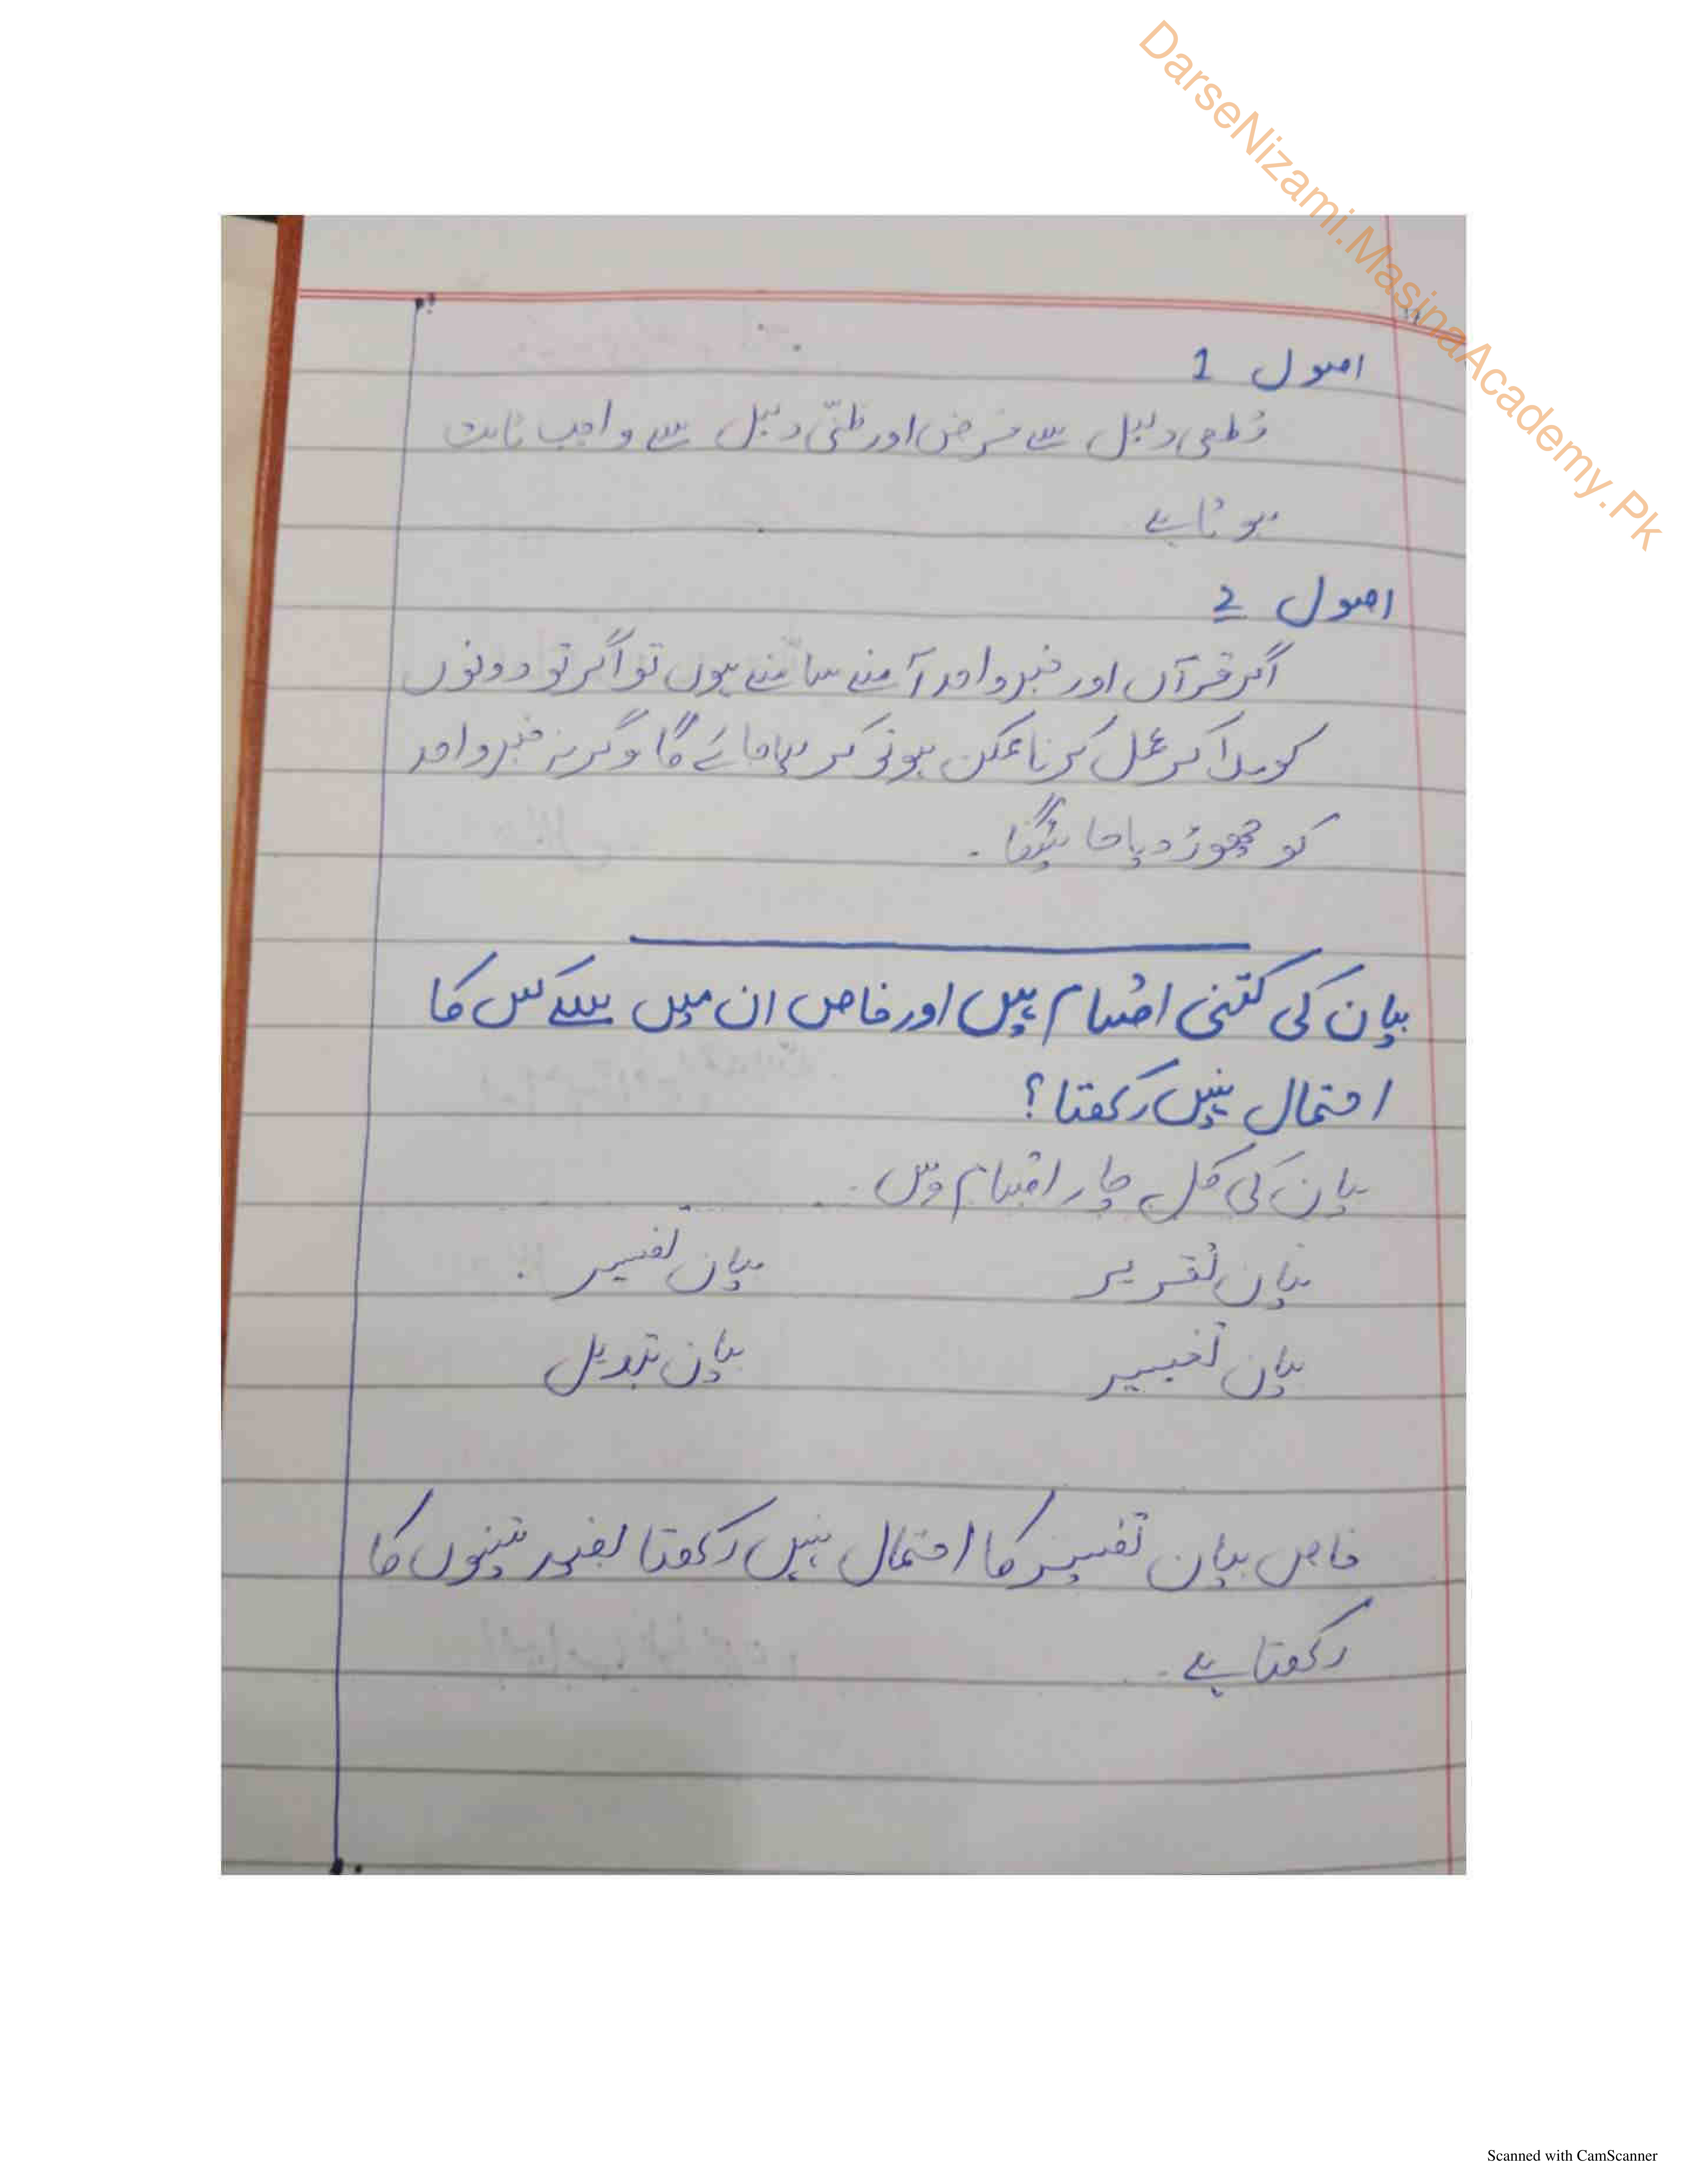 DarseNizami.MasinaAcademy.Pk
اصول 1
قطعی دلیل سے فرض اور ظنّی دلیل سے واجب ثابت
ہوتا ہے
اصول 2
اگر قرآن اور خبر واحد آمنے سامنے ہوں تو اگر تو دونوں
کو ملا کر عمل کرنا ممکن ہو تو کر لیا جائے گا وگرنہ خبر واحد
کو چھوڑ دیا جائیگا۔
بیان کی کتنی اقسام ہیں اور خاص ان میں سے کس کا
احتمال نہیں رکھتا؟
بیان کی کل چار اقسام ہیں
بیان تقریر بیان تفسیر
بیان تغییر بیان تبدیل
خاص بیان تفسیر کا احتمال نہیں رکھتا تینوں کا
رکھتا ہے
Scanned with CamScanner